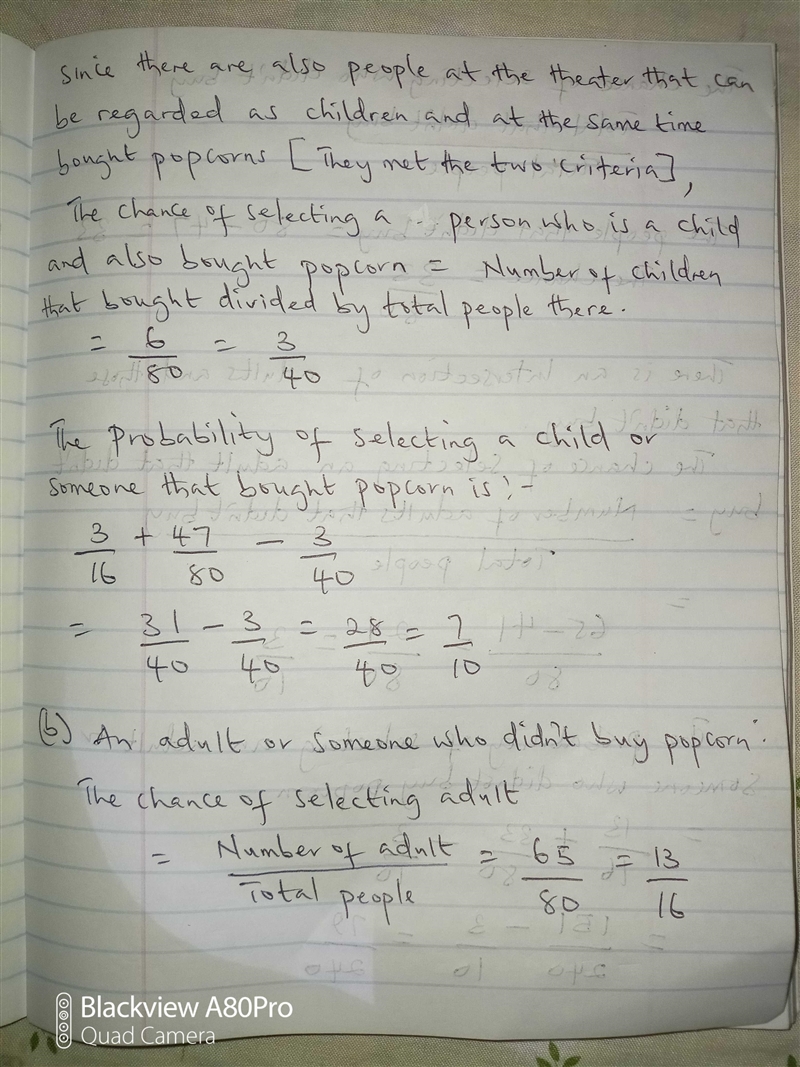 Since there are also people at the theater that can
be regarded as children and at the same time
bought popcorns [They met the two criteria],
The chance of selecting a person who is a child
and also bought popcorn = Number of children
that bought divided by total people there.
= 6/80 = 3/40
The Probability of selecting a child or
someone that bought popcorn is :-
3/16 + 47/80 - 3/40
= 31/40 - 3/40 = 28/40 = 7/10
(b) An adult or someone who didn't buy popcorn.
The chance of selecting adult
= Number of adult/Total people = 65/80 = 13/16
Blackview A80Pro
Quad Camera